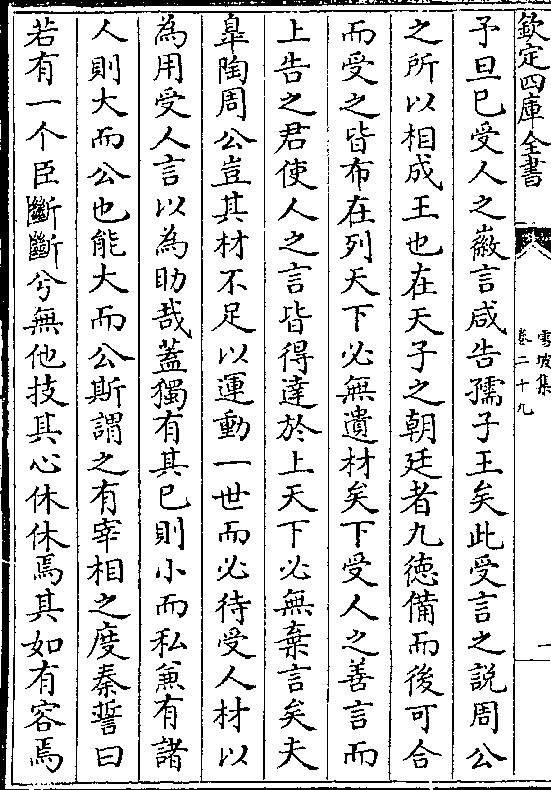 欽定四庫全書
雪坡集
卷二十九
一
予旦已受人之徽言咸告孺子王矣此受言之說周公
之所以相成王也在天子之朝廷者九德備而後可合
而受之皆布在列天下必無遺材矣下受人之善言而
上告之君使人之言皆得達於上天下必無棄言矣夫
臯陶周公豈其材不足以運動一世而必待受人材以
為用受人言以為助哉蓋獨有其已則小而私兼有諸
人則大而公也能大而公斯謂之有宰相之度秦誓曰
若有一个臣斷斷兮無他技其心休休焉其如有容焉